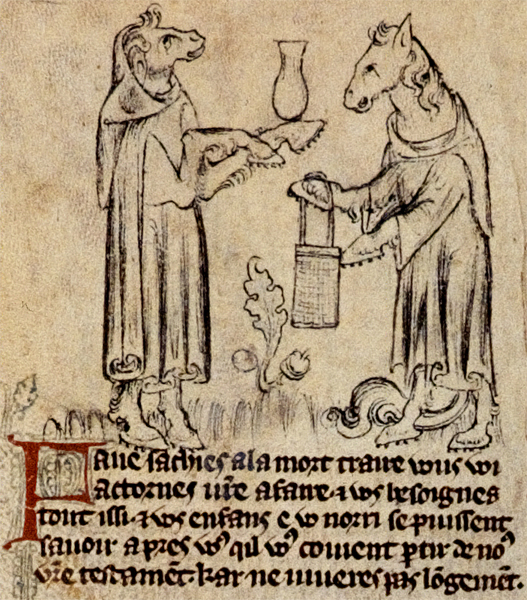 Faue sachies ala mort traire wus wi
actornes ur̄e afaire. ⁊ wˢ besoignes
tout issi. ⁊ wˢ enfans e w norri se puissent
sauoir apres wˢ qil wˢ couient ꝑtir de noˢ
vr̄e testamēt. kar ne uiueres pas lōgemēt.